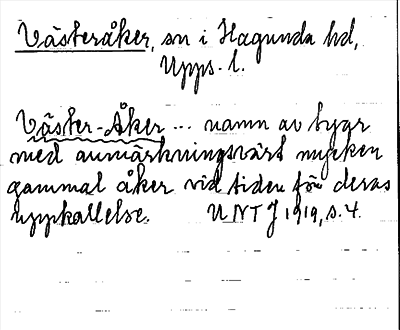 Västeråker, sn i Hagunda hd,
Upps. l.
Väster-Åker ... namn av bygr
med anmärkningsvärt mycken
gammal åker vid tiden för deras
uppkallelse. UNT J 1919, s. 4.